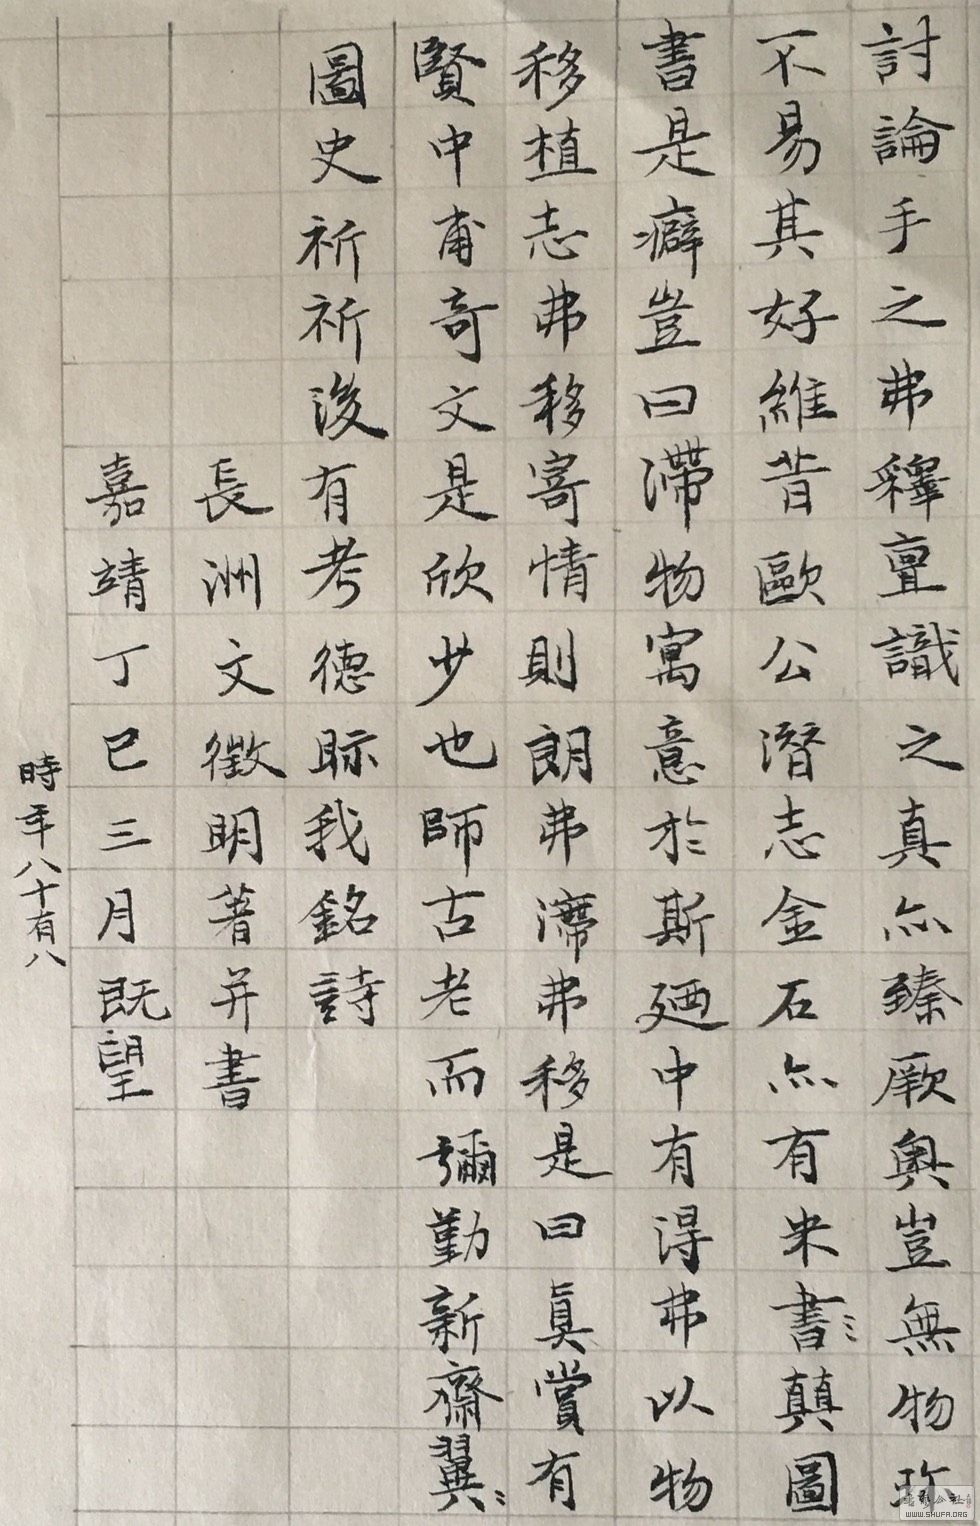 討論手之弗釋亶識之真亦臻厥奧豈無物珍
不易其好維昔歐公潛志金石亦有米書顛圖
書是癖豈曰滯物寓意於斯廼中有得弗以物
移植志弗移寄情則朗弗滯弗移是曰真賞有
賢中甫奇文是欣少也師古老而彌勤新齋翼〻
圖史祈祈後有考德眎我銘詩
長洲文徵明著并書
嘉靖丁巳三月既望
時年八十有八
WWW.SHUFA.ORG